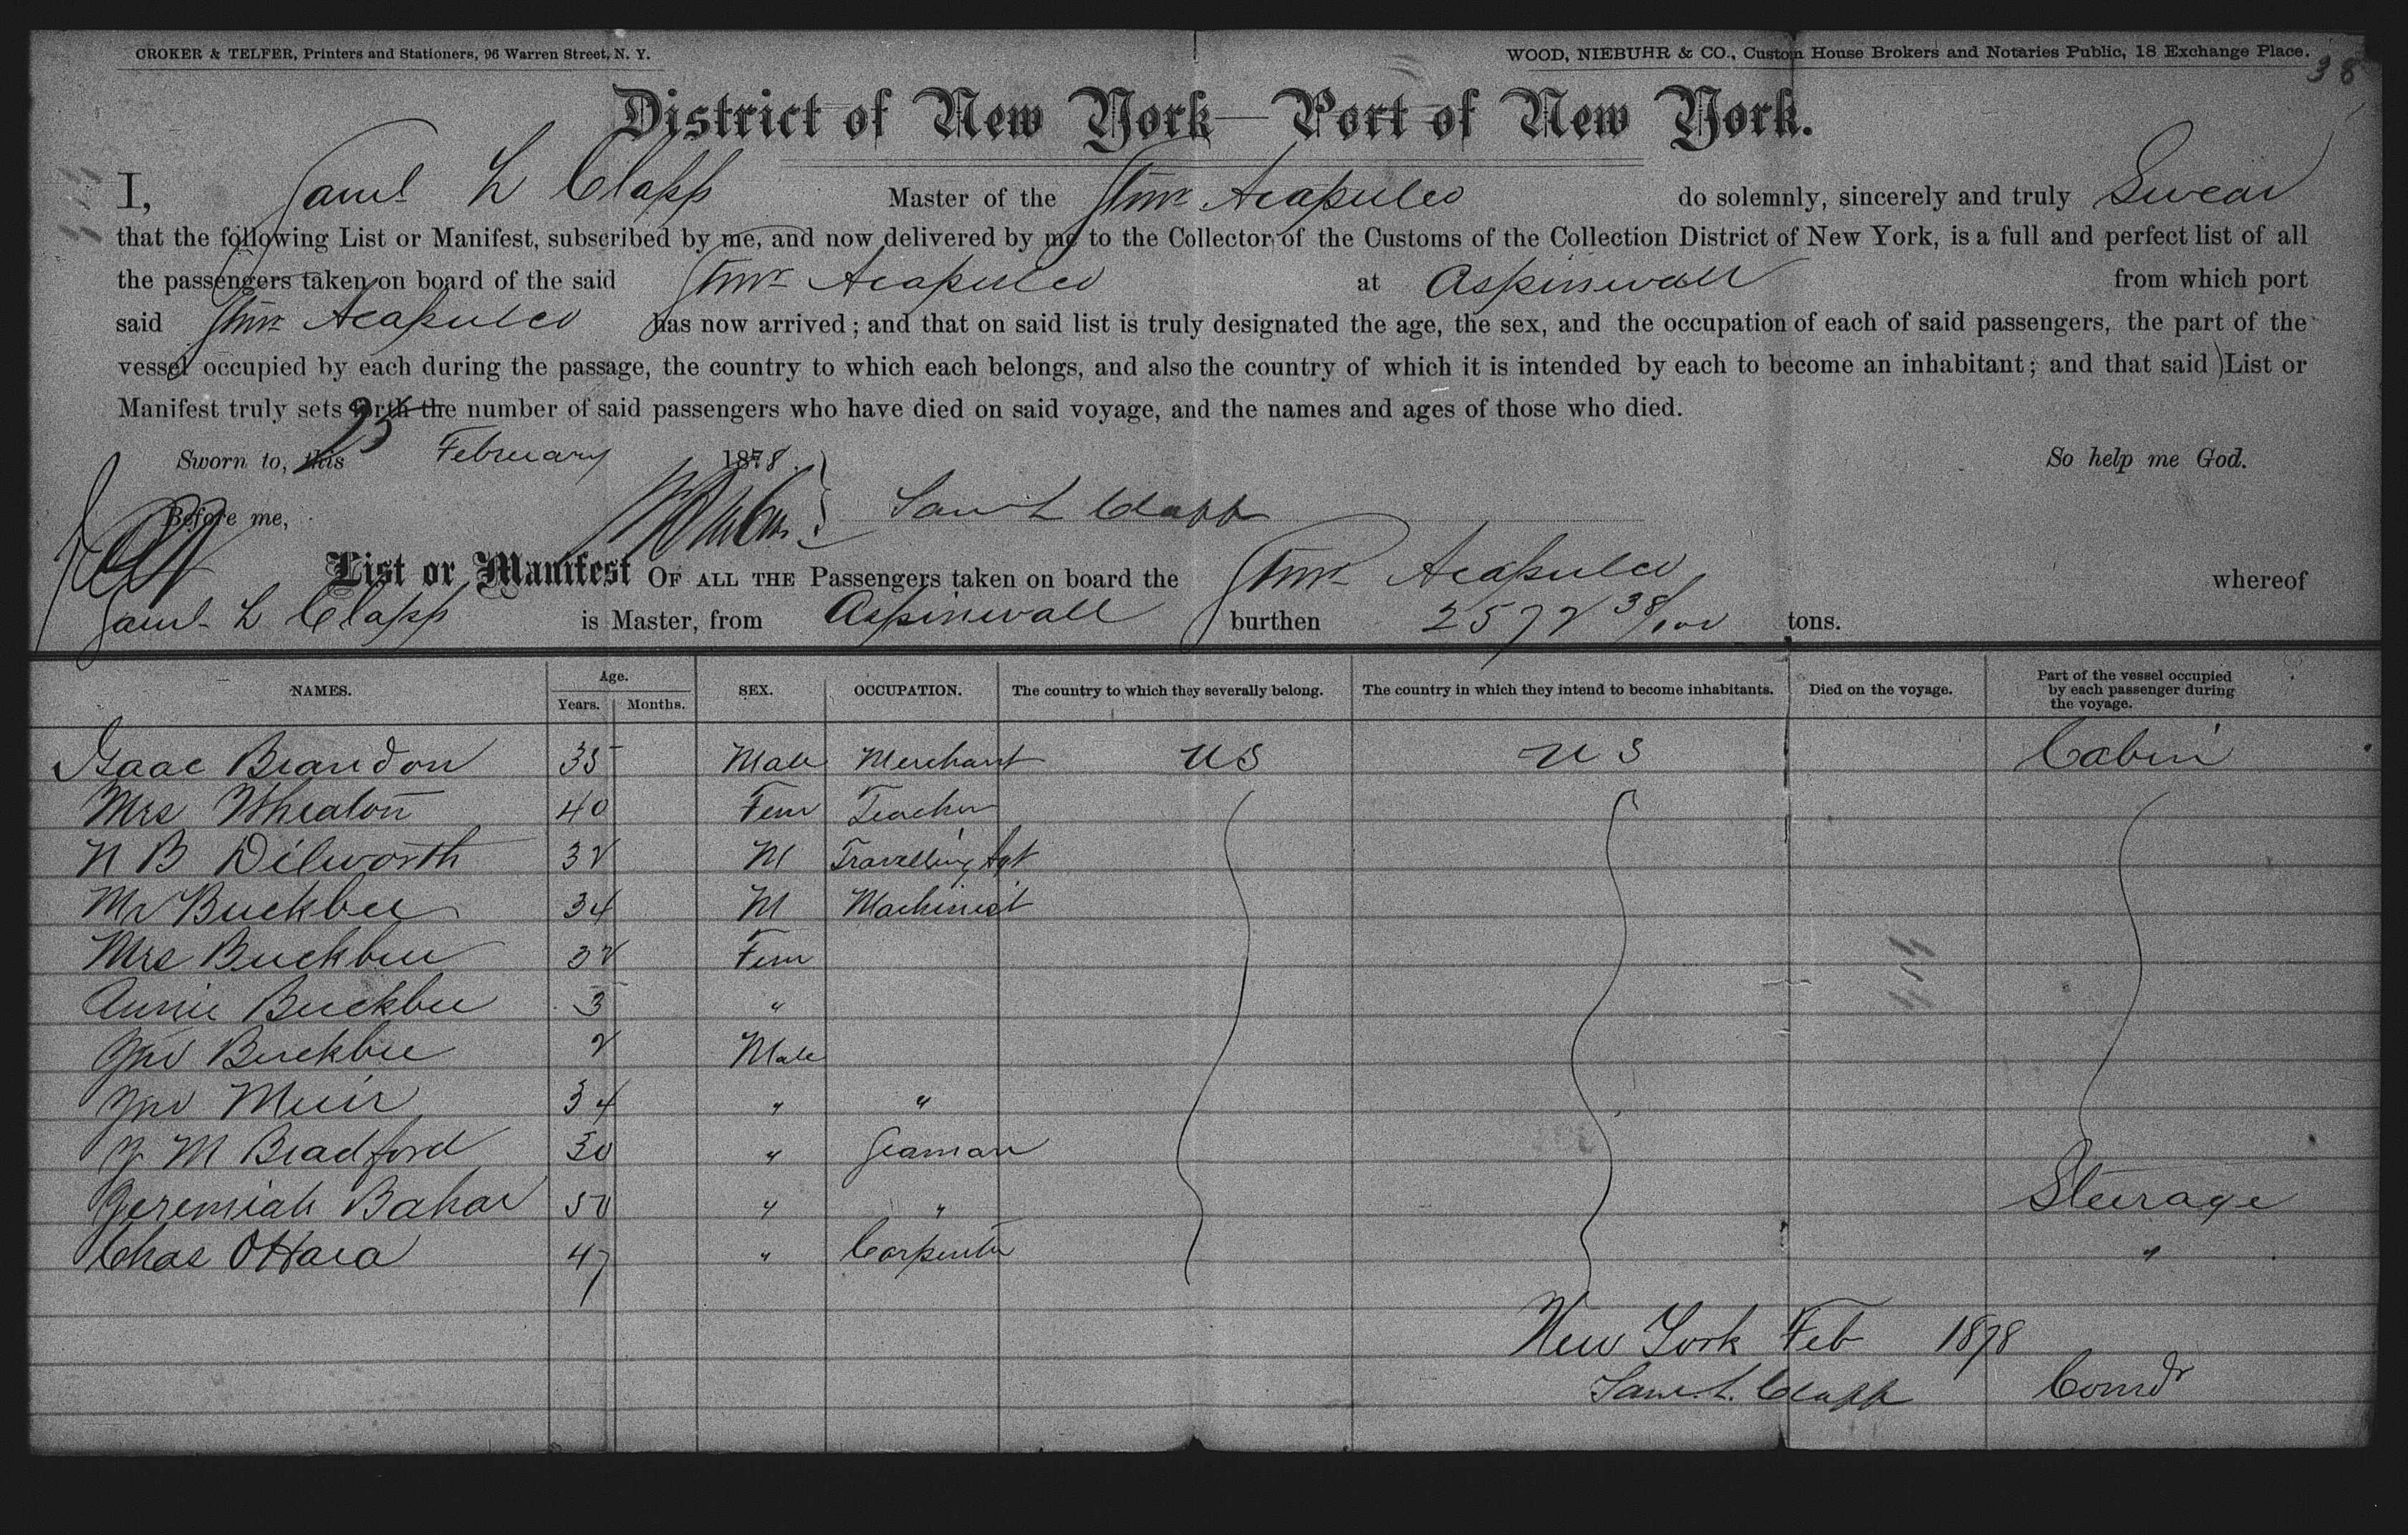 CROKER & TELFER, Printers and Stationers, 96 Warren Street, N. Y. WOOD, NIEBUHR & CO., Custom House Brokers and Notaries Public, 18 Exchange Place. 38
District of New York—Port of New York.
I, Saml L Clapp Master of the Stmr Acapulco do solemnly, sincerely and truly Swear
that the following List or Manifest, subscribed by me, and now delivered by me to the Collector of the Customs of the Collection District of New York, is a full and perfect list of all
the passengers taken on board of the said Stmr Acapulco at Aspinwall from which port
said Stmr Acapulco has now arrived; and that on said list is truly designated the age, the sex, and the occupation of each of said passengers, the part of the
vessel occupied by each during the passage, the country to which each belongs, and also the country of which it is intended by each to become an inhabitant; and that said List or
Manifest truly sets forth the number of said passengers who have died on said voyage, and the names and ages of those who died.
Sworn to, this 25 February 1878. So help me God.
Before me, Sam L Clapp
List or Manifest OF ALL THE Passengers taken on board the Stmr Acapulco whereof
Saml L Clapp is Master, from Aspinwall burthen 2572 38/100 tons.
NAMES. Age. Years. Months. SEX. OCCUPATION. The country to which they severally belong. The country in which they intend to become inhabitants. Died on the voyage. Part of the vessel occupied by each passenger during the voyage.
Isaac Brandon 35 Male Merchant US US Cabin
Mrs Wheaton 40 Fem Teacher
N B Dilworth 32 M Travelling Agt
Mr Buckbee 34 M Machinist
Mrs Buckbee 32 Fem
Annie Buckbee 3 "
Jno Buckbee 2 Male
Jno Muir 34 " "
J M Bradford 30 " Seaman
Jeremiah Bahar 50 " " Steerage
Chas OHara 47 " Carpenter "
New York Feb 1878
Sam. L. Clapp Comdr